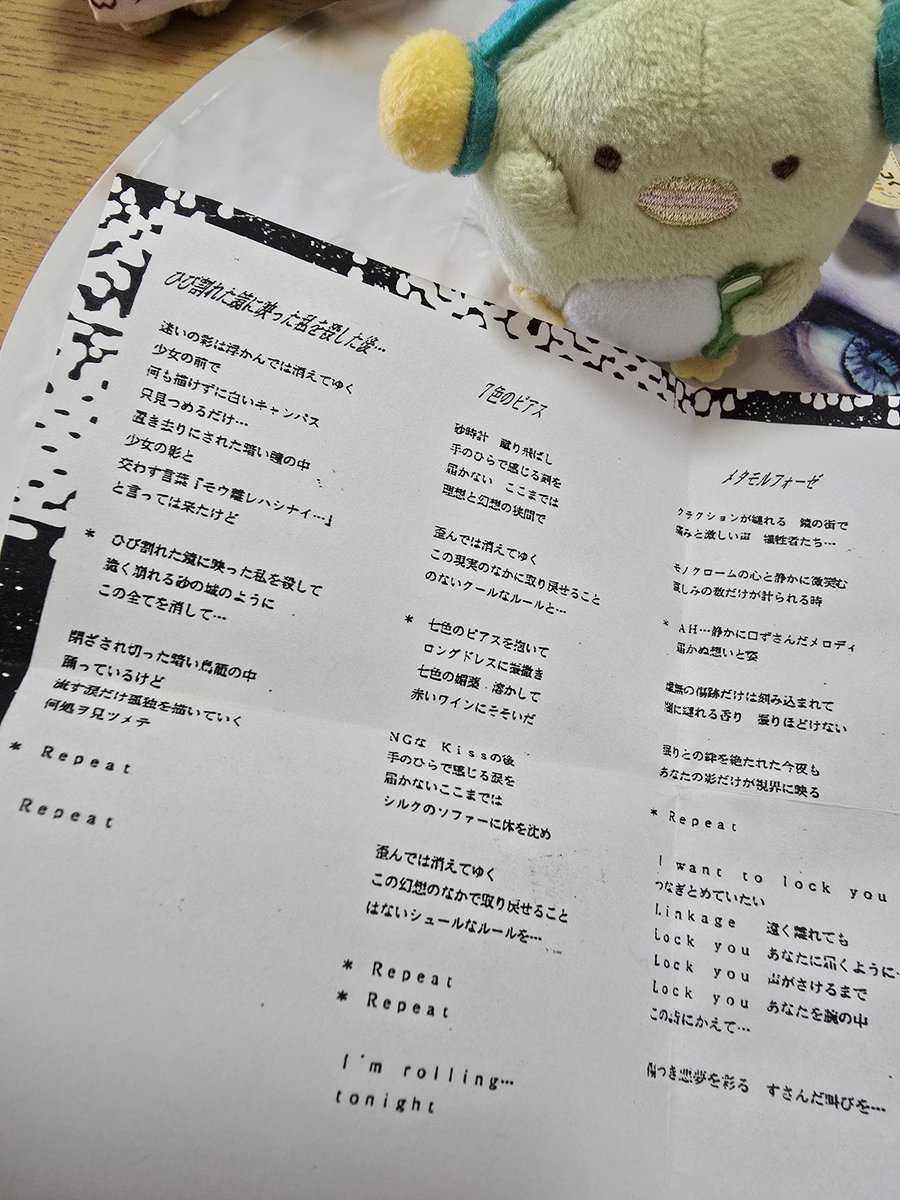 ひび割れた鏡に映った私を殺した後…
迷いの彩は浮かんでは消えてゆく
少女の前で
何も描けずに白いキャンパス
只見つめるだけ…
置き去りにされた暗い瞳の中
少女の影と
交わす言葉『モウ離レハシナイ…』
と言っては来たけど
* ひび割れた鏡に映った私を殺して
遠く崩れる砂の城のように
この全てを消して…
閉ざされ切った暗い鳥籠の中
踊っているけど
流す涙だけ孤独を描いていく
何処ヲ見ツメテ
* Repeat
Repeat
7色のピアス
砂時計 蹴り飛ばし
手のひらで感じる刻を
届かない ここまでは
理想と幻想の狭間で
歪んでは消えてゆく
この現実のなかに取り戻せること
のないクールなルールと…
* 七色のピアスを抱いて
ロングドレスに
七色の媚薬 溶かして
赤いワインにそそいだ
NGな Kissの後
手のひらで感じる涙を
届かないここまでは
シルクのソファーに体を沈め
歪んでは消えてゆく
この幻想のなかで取り戻せること
はないシュールなルールを…
* Repeat
* Repeat
I'm rolling…
tonight
メタモルフォーゼ
クラクションが縺れる 鏡の街で
痛みと激しい声 犠牲者たち…
モノクロームの心と静かに微笑む
哀しみの数だけが計られる時
* AH…静かに口ずさんだメロディ
届かぬ想いと姿
虚無の傷跡だけは刻み込まれて
闇に縺れる香り 振りほどけない
眠りとの絆を絶たれた今夜も
あなたの影だけが視界に映る
* Repeat
I want to lock you
つなぎとめていたい
Linkage 遠く離れても
Lock you あなたに届くように…
Lock you 声がさけるまで
Lock you あなたを腕の中
この詩にかえて…
傷つき悪夢を彩る すさんだ叫びを…